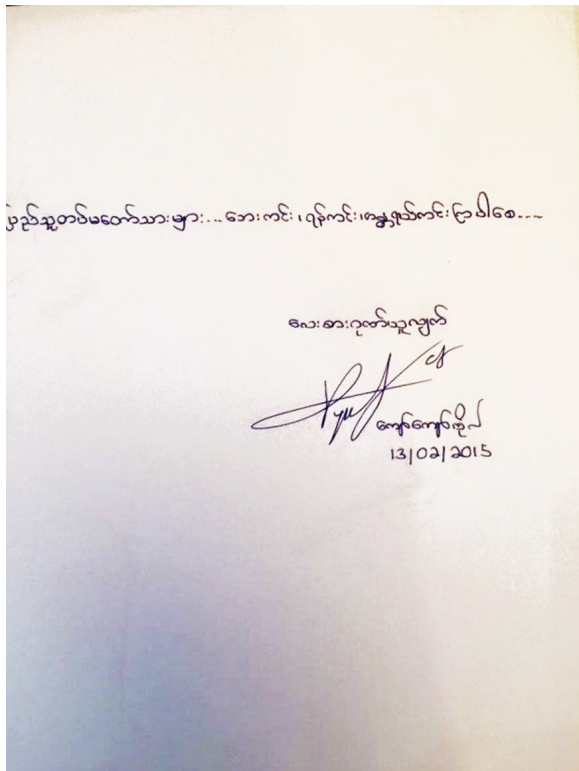 ပြည်သူ့တပ်မတော်သားများ... ဘေးကင်း၊ ရန်ကင်း၊ အန္တရာယ်ကင်းကြပါစေ....
လေးစားဂုဏ်ယူလျှက်
ကျော်ကျော်ဗိုလ်
13/02/2015